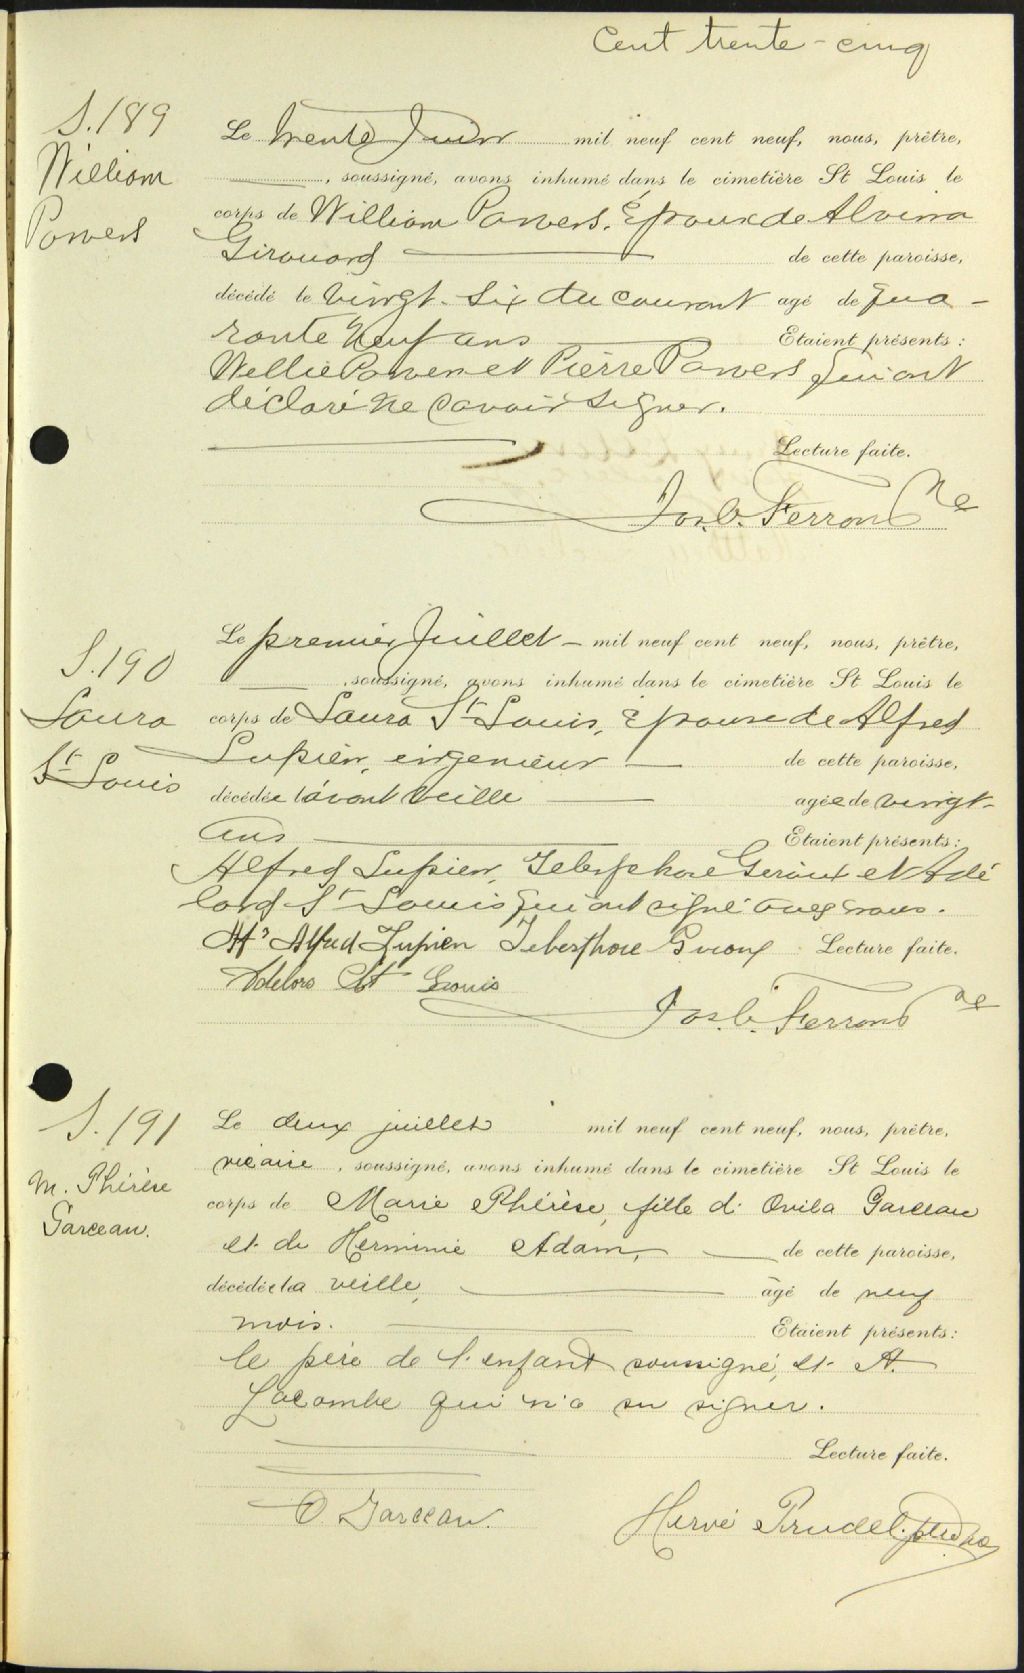 Cent trente-cinq
S. 189
William
Powers
Le trente Juin mil neuf cent neuf, nous, prêtre,
, soussigné, avons inhumé dans le cimetière St Louis le
corps de William Powers, Epoux de Alvina
Girouard de cette paroisse,
décédé le vingt-six du courant agé de qua-
rante neuf ans Etaient présents:
Willie Powers et Pierre Powers qui ont
déclaré ne savoir signer.
Lecture faite.
Jos. C. Ferron Ptre
S. 190
Laura
St Louis
Le premier Juillet - mil neuf cent neuf, nous, prêtre,
, soussigné, avons inhumé dans le cimetière St Louis le
corps de Laura St Louis, Epouse de Alfred
Lupien, ingenieur de cette paroisse,
décédée l'avant veille agée de vingt-
ans Etaient présents:
Alfred Lupien, Telesphore Giroux et Adé
lard St Louis qui ont signé avec nous.
Mr Alfred Lupien Telesphore Giroux Lecture faite.
Adelard St Louis
Jos. C. Ferron Ptre
S. 191
M. Thérèse
Garceau.
Le deux juillet mil neuf cent neuf, nous, prêtre,
vicaire, soussigné, avons inhumé dans le cimetière St Louis le
corps de Marie Thérèse, fille d'Ovila Garceau
et de Herminie Adam, de cette paroisse,
décédée la veille, âgé de neuf
mois. Etaient présents:
le père de l'enfant soussigné, et A.
Lacombe qui n'a su signer.
Lecture faite.
O Garceau.
Hervé Trudel, ptre